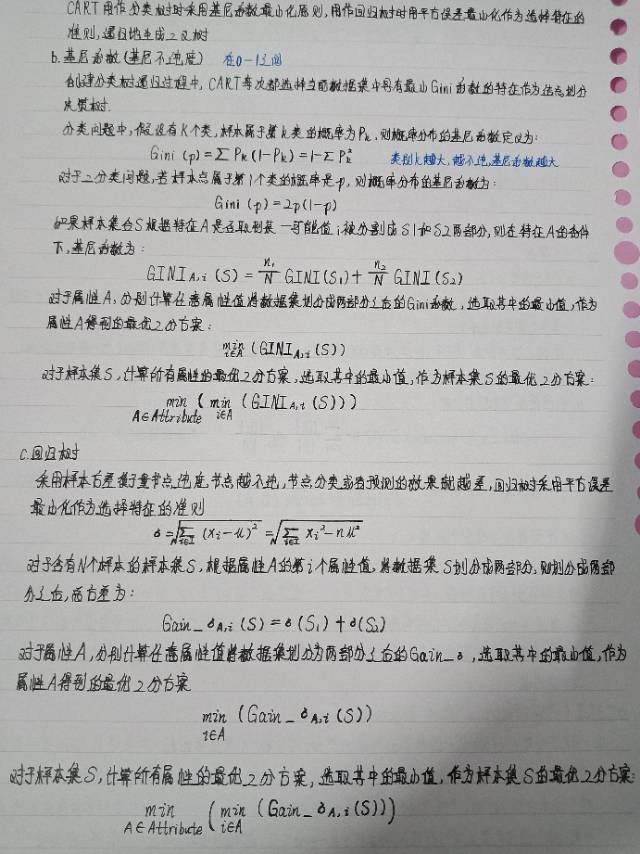 CART用作分类树时采用基尼函数最小化原则,用作回归树时用平方误差最小化作为选择特征的
准则,递归地生成二叉树
b.基尼函数(基尼不纯度) 在0-1之间
创建分类树递归过程中,CART每次都选择当前数据集中具有最小Gini函数的特征作为结点划分
决策树.
分类问题中,假设有K个类,样本属于第k类的概率为Pk,则概率分布的基尼函数定义为:
Gini(p)=∑Pk(1-Pk)=1-∑Pk² 类别k越大,越不纯,基尼函数越大
对于2分类问题,若样本点属于第1个类的概率是p,则概率分布的基尼函数为:
Gini(p)=2p(1-p)
如果样本集合S根据特征A是否取到某一可能值i被分割成S1和S2两部分,则在特征A的条件
下,基尼函数为:
GINI_{A,i}(S)=n₁/N GINI(S₁)+n₂/N GINI(S₂)
对于属性A,分别计算任意属性值将数据集划分成两部分之后的Gini函数,选取其中的最小值,作为
属性A得到的最优2分方案:
min_{i∈A}(GINI_{A,i}(S))
对于样本集S,计算所有属性的最优2分方案,选取其中的最小值,作为样本集S的最优2分方案:
min_{A∈Attribute}(min_{i∈A}(GINI_{A,i}(S)))
C.回归树
采用样本方差衡量节点纯度,节点越不纯,节点分类或者预测的效果就越差,回归树采用平方误差
最小化作为选择特征的准则
σ=√∑_{i∈I}(xi-u)²=√∑_{i∈I}xi²-nu²
对于含有N个样本的样本集S,根据属性A的第i个属性值,将数据集S划分成两部分,则划分成两部
分之后,
方差为:
Gain_σ_{A,i}(S)=σ(S₁)+σ(S₂)
对于属性A,分别计算任意属性值将数据集划分为两部分之后的Gain_σ,选取其中的最小值,作为
属性A得到的最优2分方案
min_{i∈A}(Gain_σ_{A,i}(S))
对于样本集S,计算所有属性的最优2分方案,选取其中的最小值,作为样本集S的最优2分方案:
min_{A∈Attribute}(min_{i∈A}(Gain_σ_{A,i}(S)))